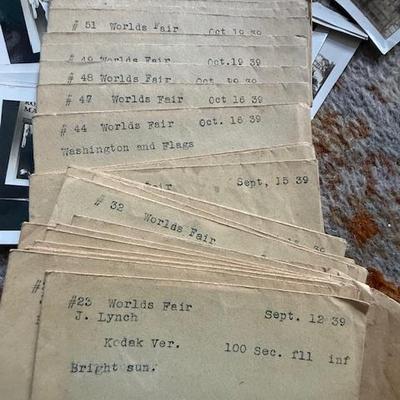 # 51 Worlds Fair Oct 19 39
# 49 Worlds Fair Oct.19 39
# 48 Worlds Fair Oct 39
# 47 Worlds Fair Oct 16 39
# 44 Worlds Fair Oct. 16 39
Washington and Flags
Fair Sept, 15 39
# 32 Worlds Fair 39
#23 Worlds Fair Sept. 12 39
J. Lynch
Kodak Ver. 100 Sec. f11 inf
Bright sun.